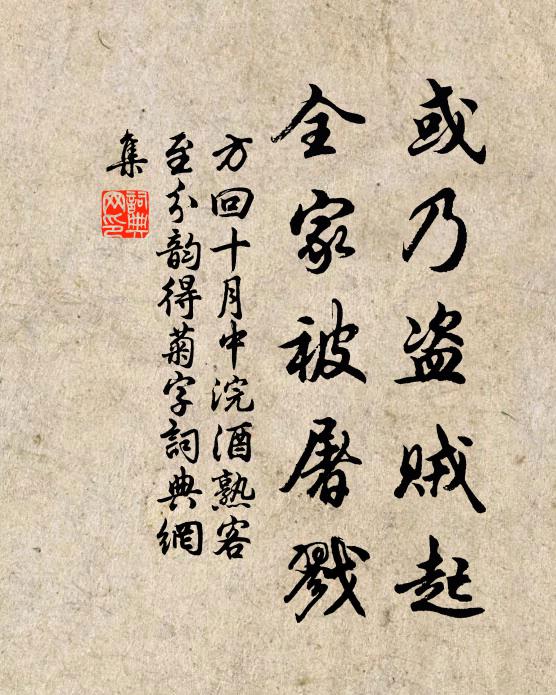 或乃盗贼起
全家被屠戮
方回十月中浣酒熟客
至分韵得菊字詞典網
集
詞典
网印